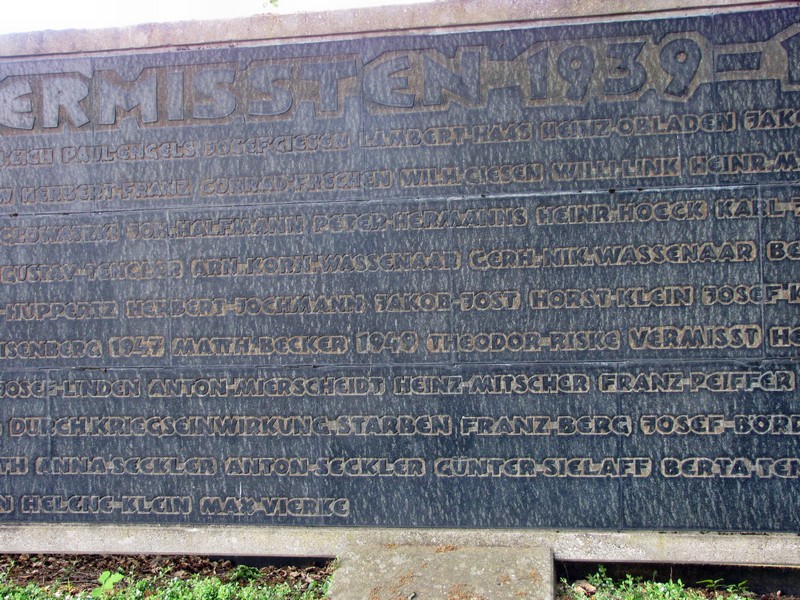 ERMISSTEN-1939-1
PAUL-ENGELS JOSEF-GIESEN LAMBERT-HAAS HEINZ-OBLADEN JAKO
HERBERT-FRANZ CONRAD-FRECHEN WILH-GIESEN WILLI-LINK HEINR-M
JOH-HALFMANN PETER-HERMANNS HEINR-HOECK KARL-
GUSTAV-TENGLER ARN-KORN-WASSENAAR GERH-NIK-WASSENAAR BE
-HUPPERTZ HERBERT-JOCHMANN JAKOB-JOST HORST-KLEIN JOSEF-K
ISENBERG 1947 MATTH-BECKER 1949 THEODOR-RISKE VERMISST HE
JOSEF-LINDEN ANTON-MIERSCHEIDT HEINZ-MITSCHER FRANZ-PEIFFER
DURCH-KRIEGSEINWIRKUNG-STARBEN FRANZ-BERG JOSEF-BORR
TH ANNA-SECKLER ANTON-SECKLER GÜNTER-SIELAFF BERTA-TEN
N HELENE-KLEIN MAX-VIERKE